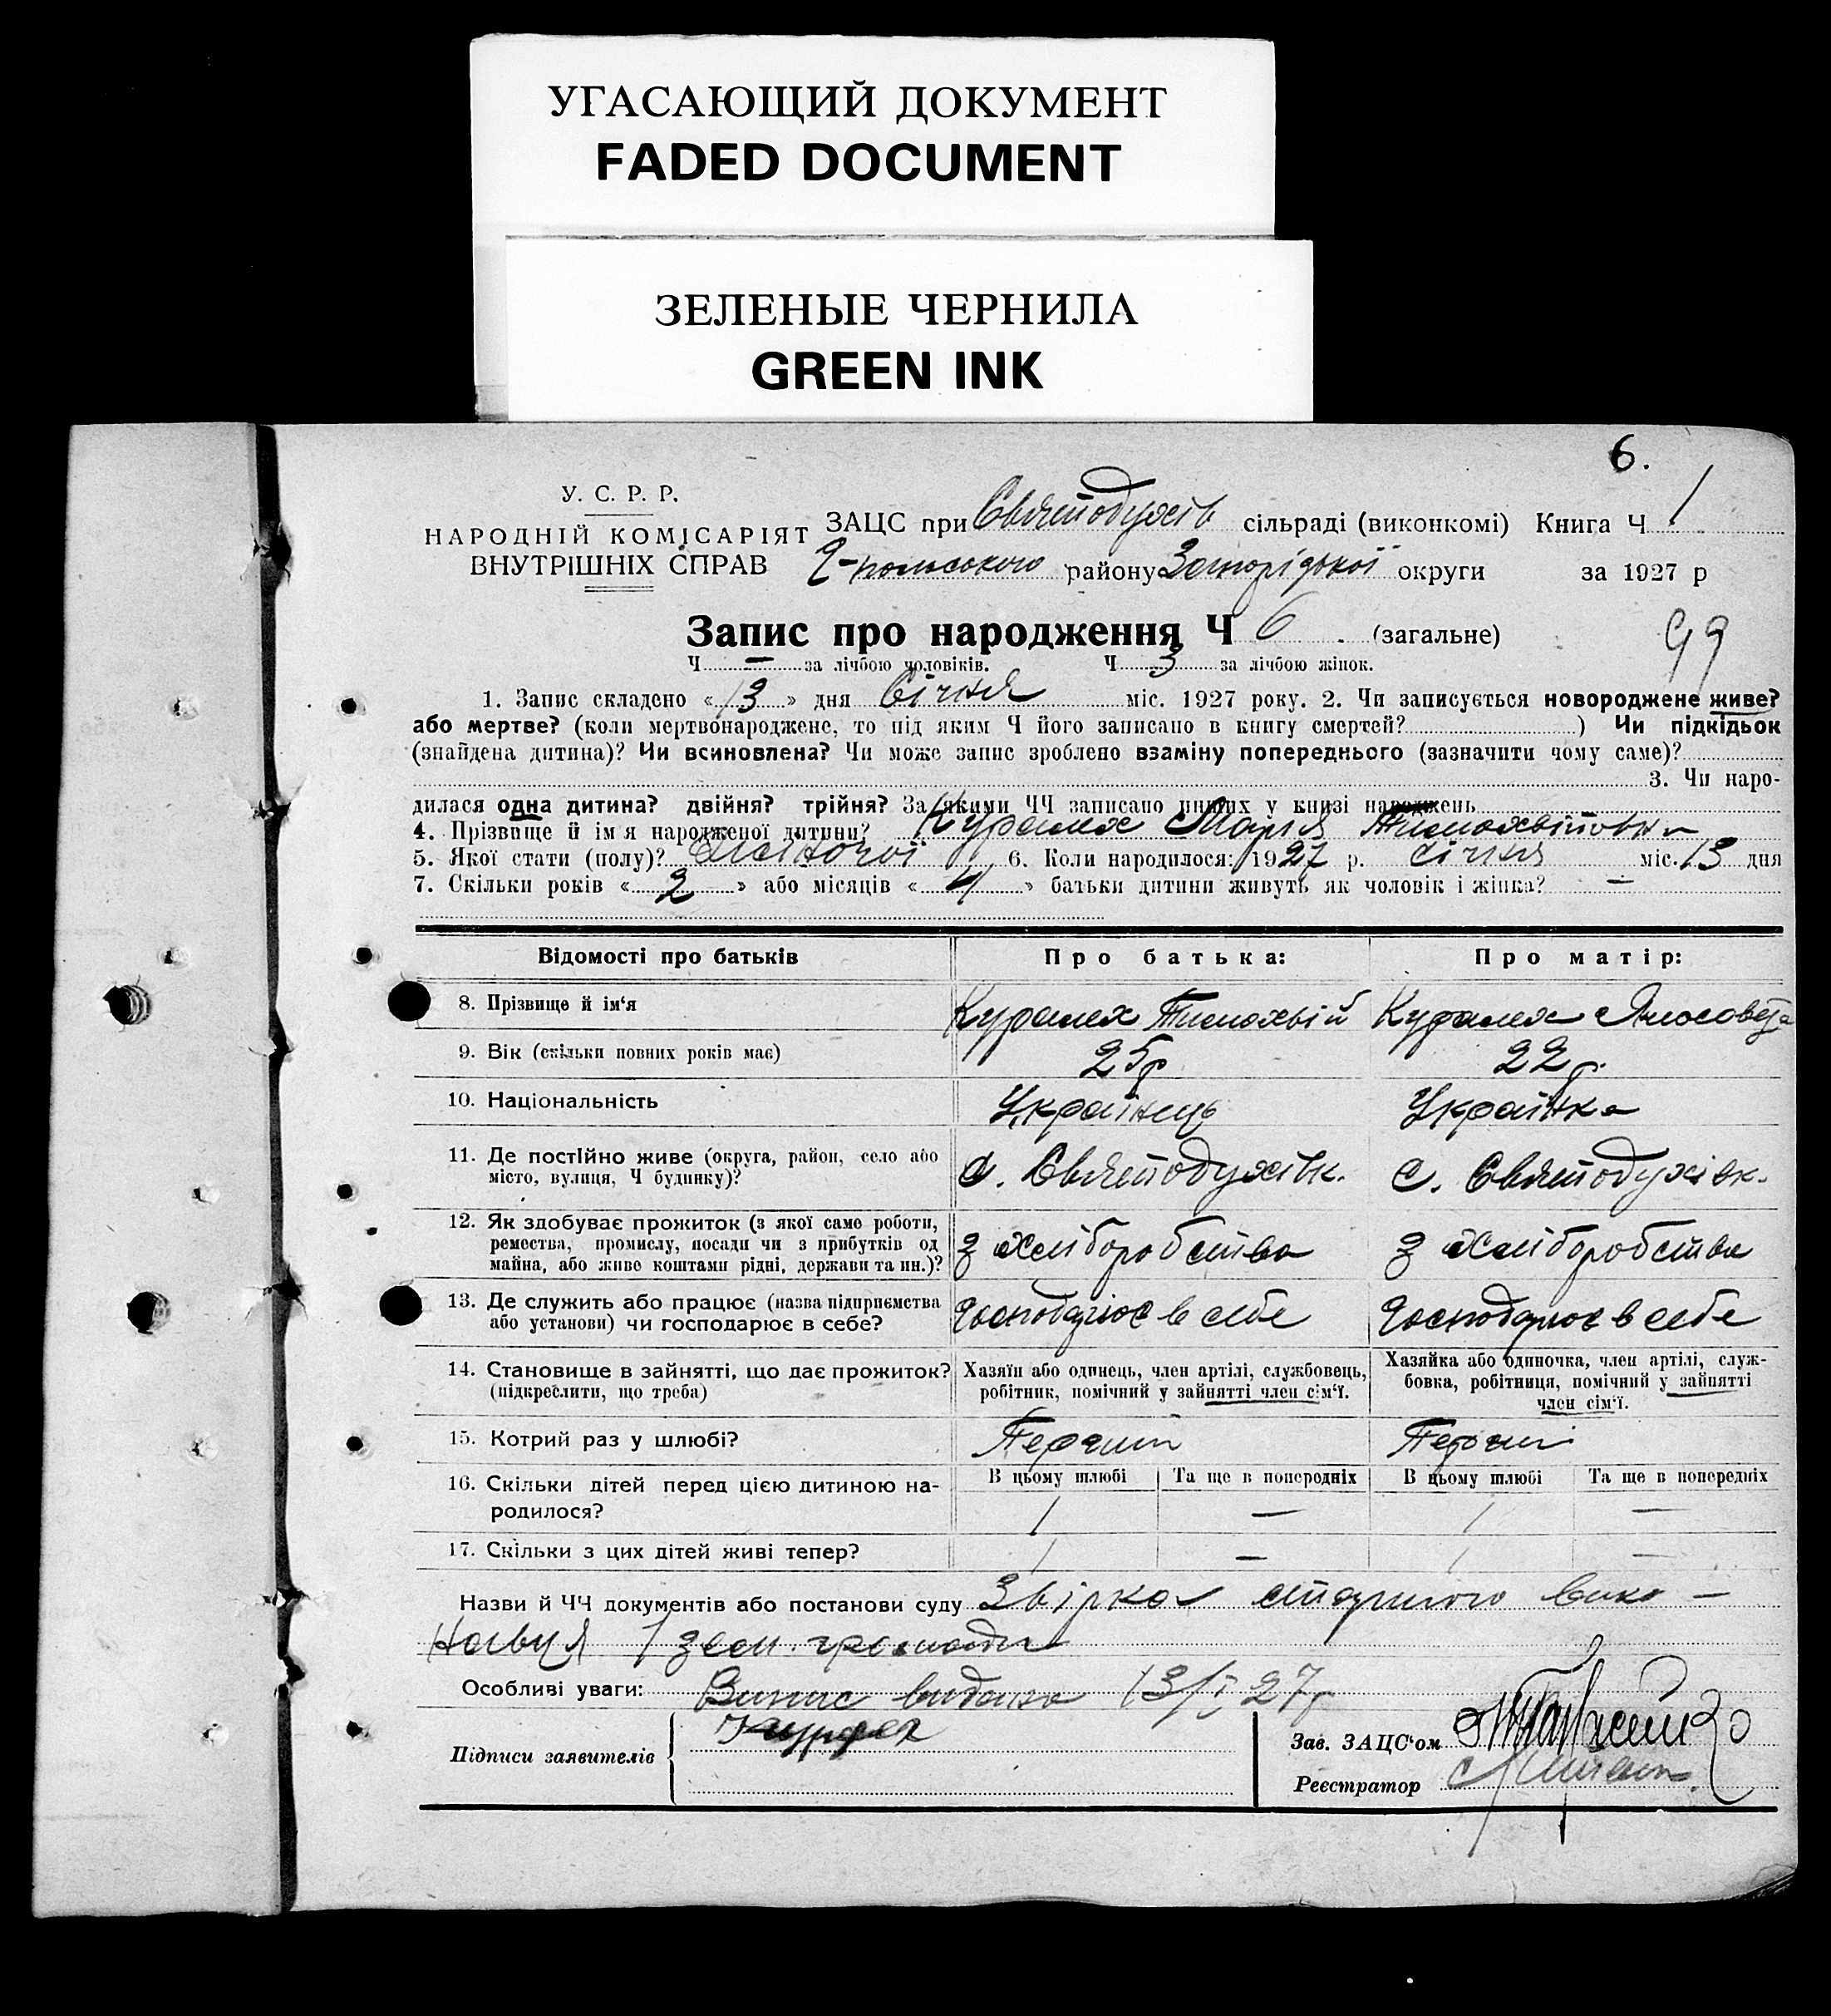 УГАСАЮЩИЙ ДОКУМЕНТ
FADED DOCUMENT
ЗЕЛЕНЫЕ ЧЕРНИЛА
GREEN INK
6.
У. С. Р. Р.
НАРОДНІЙ КОМІСАРІЯТ
ВНУТРІШНІХ СПРАВ
ЗАЦС при Святодухів сільраді (виконкомі) Книга Ч 1
району Запорізької округи за 1927 р
Запис про народження Ч 6 (загальне)
99
Ч — за лічбою чоловіків. Ч 3 за лічбою жінок.
1. Запис складено «13» дня Січня міс. 1927 року. 2. Чи записується новороджене живе?
або мертве? (коли мертвонароджене, то під яким Ч його записано в книгу смертей? ) Чи підкідьок
(знайдена дитина)? Чи всиновлена? Чи може запис зроблено взаміну попереднього (зазначити чому саме)?
3. Чи наро-
дилася одна дитина? двійня? трійня? За якими ЧЧ записано инших у книзі народжень
4. Прізвище й імя народженої дитини? Марія Тимохвіїовна
5. Якої стати (полу)? Жіночої 6. Коли народилося: 1927 р. січня міс. 13 дня
7. Скільки років «2» або місяців «4» батьки дитини живуть як чоловік і жінка? —
Відомості про батьків
Про батька:
Про матір:
8. Прізвище й ім‘я
Тимохвій
9. Вік (скільки повних років має)
25р
22р.
10. Національність
Українець
Українка
11. Де постійно живе (округа, район, село або
місто, вулиця, Ч будинку)?
с. Святодухівк.
с. Святодухівк.
12. Як здобуває прожиток (з якої саме роботи,
ремества, промислу, посади чи з прибутків од
майна, або живе коштами рідні, держави та ин.)?
з хліборобства
з хліборобства
13. Де служить або працює (назва підприємства
або установи) чи господарює в себе?
Господарює в себе
Господарює в себе
14. Становище в зайнятті, що дає прожиток?
(підкреслити, що треба)
Хазяїн або одинець, член артілі, службовець,
робітник, помічний у зайнятті член сім‘ї.
Хазяйка або одиночка, член артілі, служ-
бовка, робітниця, помічний у зайнятті
член сім‘ї.
15. Котрий раз у шлюбі?
Перший
Перший
16. Скільки дітей перед цією дитиною на-
родилося?
В цьому шлюбі
Та ще в попередніх
В цьому шлюбі
Та ще в попередніх
1 — 1 —
17. Скільки з цих дітей живі тепер?
1 — 1 —
Назви й ЧЧ документів або постанови суду Звірка старшого вико-
навця 1 зем. громади
Особливі уваги: Випис видано 13/I 27р
Підписи заявителів
Зав. ЗАЦС‘ом
Реєстратор